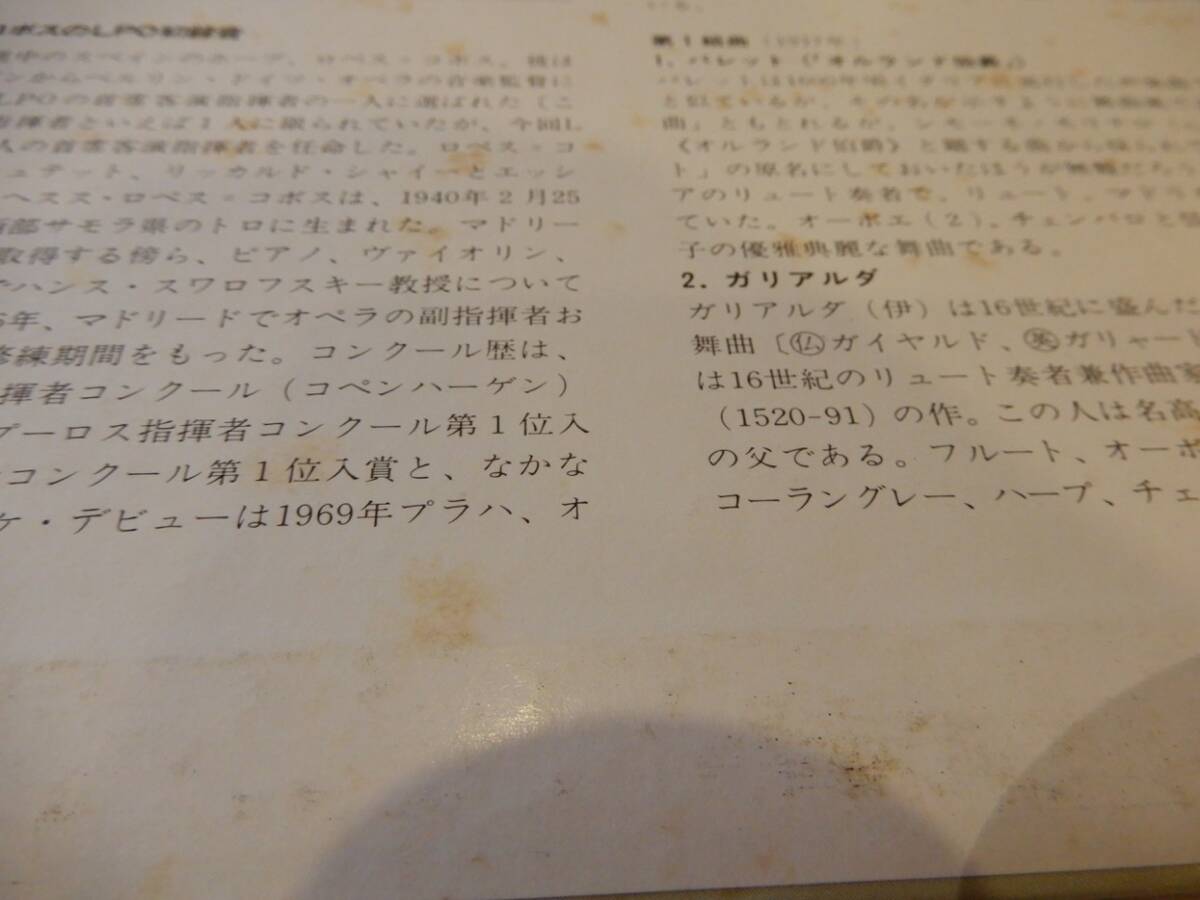 コボスのLPO初録音
中のスペインのホープ、ロペス＝コボス。彼は
ンからベルリン・ドイツ・オペラの音楽監督に
LPOの首席客演指揮者の一人に選ばれた（こ
指揮者といえば1人に限られていたが、今回L
人の首席客演指揮者を任命した。ロペス＝コ
ュテット、リッカルド・シャイーとエッシ
ヘスス・ロペス＝コボスは、1940年2月25
西部サモラ県のトロに生まれた。マドリー
取得する傍ら、ピアノ、ヴァイオリン、
でハンス・スワロフスキー教授について
6年、マドリードでオペラの副指揮者お
修練期間をもった。コンクール歴は、
揮者コンクール（コペンハーゲン）
プーロス指揮者コンクール第1位入
コンクール第1位入賞と、なかな
ケ・デビューは1969年プラハ、オ
第1組曲（1917年）
1. バレット（「オルランド伯爵」）
バレットは1600年頃イタリア
と似ているが、その名が示すように
曲」ともとれるが、シモーネ・モリナロ
《オルランド伯爵》と題する曲から採られて
ト」の原名にしておいたほうが無難だろう
アのリュート奏者で、リュート、マドラ
ていた。オーボエ（2）、チェンバロと弦
子の優雅典麗な舞曲である。
2. ガリアルダ
ガリアルダ（伊）は16世紀に盛んだ
舞曲〔㊋ガイヤルド、㊍ガリャート
は16世紀のリュート奏者兼作曲家
(1520-91) の作。この人は名高
の父である。フルート、オーボ
コーラングレー、ハープ、チェ